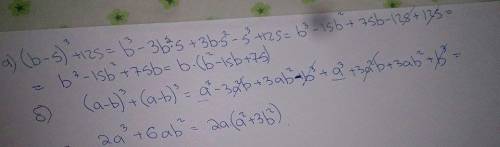 a) (b-5)³+125 = b³-3b²·5+3b·5²-5³+125 = b³-15b²+75b-125+125 =
= b³-15b²+75b = b·(b²-15b+75)
б) (a-b)³+(a-b)³ = a³-3a²b+3ab²-b³+a³+3a²b+3ab²+b³ =
2a³+6ab² = 2a(a²+3b²)